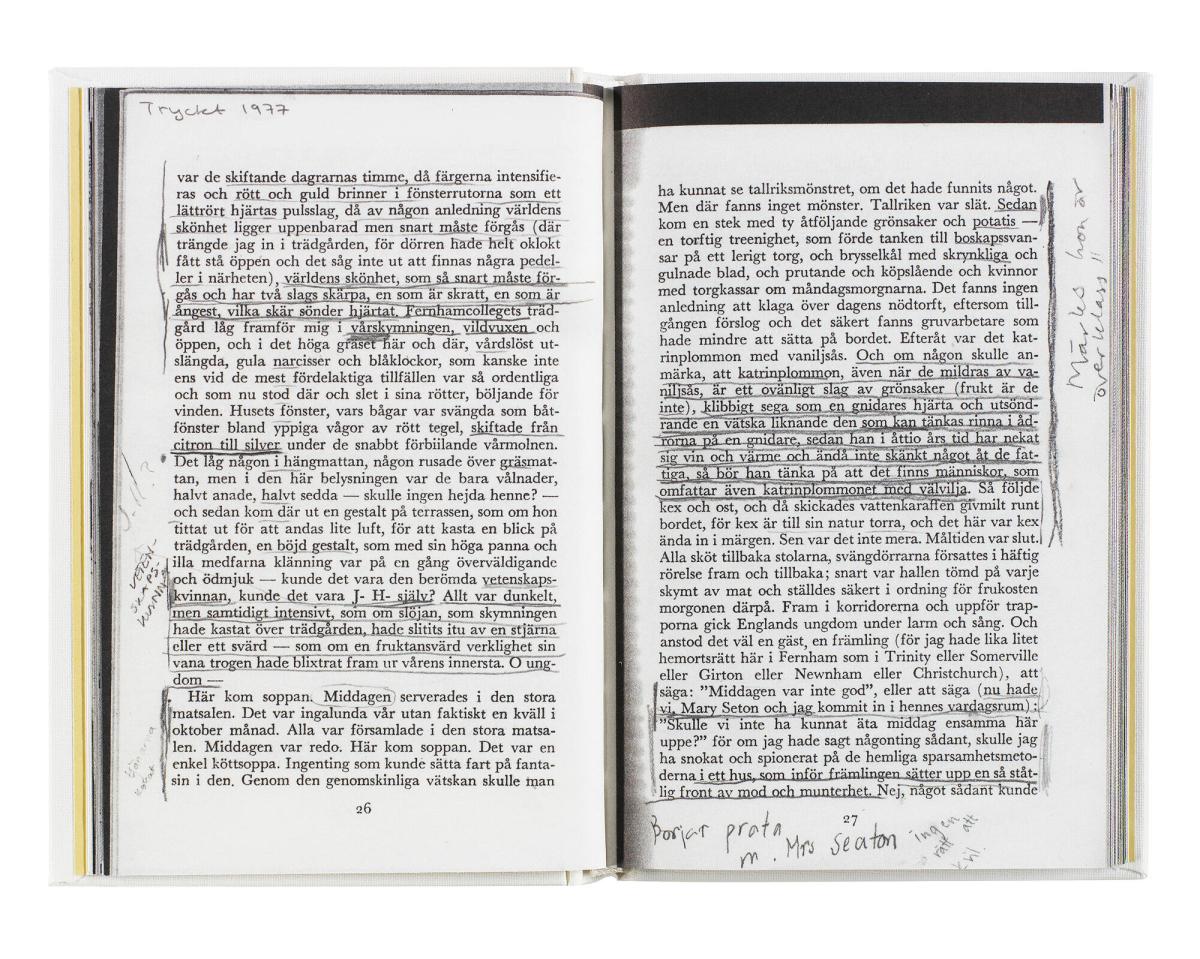 Tryckt 1977
var de skiftande dagrarnas timme, då färgerna intensifie-
ras och rött och guld brinner i fönsterrutorna som ett
lättrört hjärtas pulsslag, då av någon anledning världens
skönhet ligger uppenbarad men snart måste förgås (där
trängde jag in i trädgården, för dörren hade helt oklokt
fått stå öppen och det såg inte ut att finnas några pedel-
ler i närheten), världens skönhet, som så snart måste för-
gås och har två slags skärpa, en som är skratt, en som är
ångest, vilka skär sönder hjärtat. Fernhamcollegets träd-
gård låg framför mig i vårskymningen, vildvuxen och
öppen, och i det höga gräset här och där, vårdslöst ut-
slängda, gula narcisser och blåklockor, som kanske inte
ens vid de mest fördelaktiga tillfällen var så ordentliga
och som nu stod där och slet i sina rötter, böljande för
vinden. Husets fönster, vars bågar var svängda som båt-
fönster bland yppiga vågor av rött tegel, skiftade från
citron till silver under de snabbt förbiilande vårmolnen.
Det låg någon i hängmattan, någon rusade över gräsmat-
tan, men i den här belysningen var de bara vålnader,
halvt anade, halvt sedda — skulle ingen hejda henne? —
och sedan kom där ut en gestalt på terrassen, som om hon
tittat ut för att andas lite luft, för att kasta en blick på
trädgården, en böjd gestalt, som med sin höga panna och
illa medfarna klänning var på en gång överväldigande
och ödmjuk — kunde det vara den berömda vetenskaps-
kvinnan, kunde det vara J- H- själv? Allt var dunkelt,
men samtidigt intensivt, som om slöjan, som skymningen
hade kastat över trädgården, hade slitits itu av en stjärna
eller ett svärd — som om en fruktansvärd verklighet sin
vana trogen hade blixtrat fram ur vårens innersta. O ung-
dom —
Här kom soppan. Middagen serverades i den stora
matsalen. Det var ingalunda vår utan faktiskt en kväll i
oktober månad. Alla var församlade i den stora matsa-
len. Middagen var redo. Här kom soppan. Det var en
enkel köttsoppa. Ingenting som kunde sätta fart på fanta-
sin i den. Genom den genomskinliga vätskan skulle man
26
VETEN-
SKAPS-
KVINNA
ha kunnat se tallriksmönstret, om det hade funnits något.
Men där fanns inget mönster. Tallriken var slät. Sedan
kom en stek med ty åtföljande grönsaker och potatis —
en torftig treenighet, som förde tanken till boskapssvan-
sar på ett lerigt torg, och brysselkål med skrynkliga och
gulnade blad, och prutande och köpslående och kvinnor
med torgkassar om måndagsmorgnarna. Det fanns ingen
anledning att klaga över dagens nödtorft, eftersom till-
gången förslog och det säkert fanns gruvarbetare som
hade mindre att sätta på bordet. Efteråt var det kat-
rinplommon med vaniljsås. Och om någon skulle an-
märka, att katrinplommon, även när de mildras av va-
niljsås, är ett ovänligt slag av grönsaker (frukt är de
inte), klibbigt sega som en gnidares hjärta och utsönd-
rande en vätska liknande den som kan tänkas rinna i åd-
rorna på en gnidare, sedan han i åttio års tid har nekat
sig vin och värme och ändå inte skänkt något åt de fat-
tiga, så bör han tänka på att det finns människor, som
omfattar även katrinplommonet med välvilja. Så följde
kex och ost, och då skickades vattenkaraffen givmilt runt
bordet, för kex är till sin natur torra, och det här var kex
ända in i märgen. Sen var det inte mera. Måltiden var slut.
Alla sköt tillbaka stolarna, svängdörrarna försattes i häftig
rörelse fram och tillbaka; snart var hallen tömd på varje
skymt av mat och ställdes säkert i ordning för frukosten
morgonen därpå. Fram i korridorerna och uppför trap-
porna gick Englands ungdom under larm och sång. Och
anstod det väl en gäst, en främling (för jag hade lika litet
hemortsrätt här i Fernham som i Trinity eller Somerville
eller Girton eller Newnham eller Christchurch), att
säga: ”Middagen var inte god”, eller att säga (nu hade
vi, Mary Seton och jag kommit in i hennes vardagsrum):
”Skulle vi inte ha kunnat äta middag ensamma här
uppe?” för om jag hade sagt någonting sådant, skulle jag
ha snokat och spionerat på de hemliga sparsamhetsmeto-
derna i ett hus, som inför främlingen sätter upp en så ståt-
lig front av mod och munterhet. Nej, något sådant kunde
27
Märks hon är
överklass!!
Börjar prata
m. Mrs Seaton
ingen
rätt att